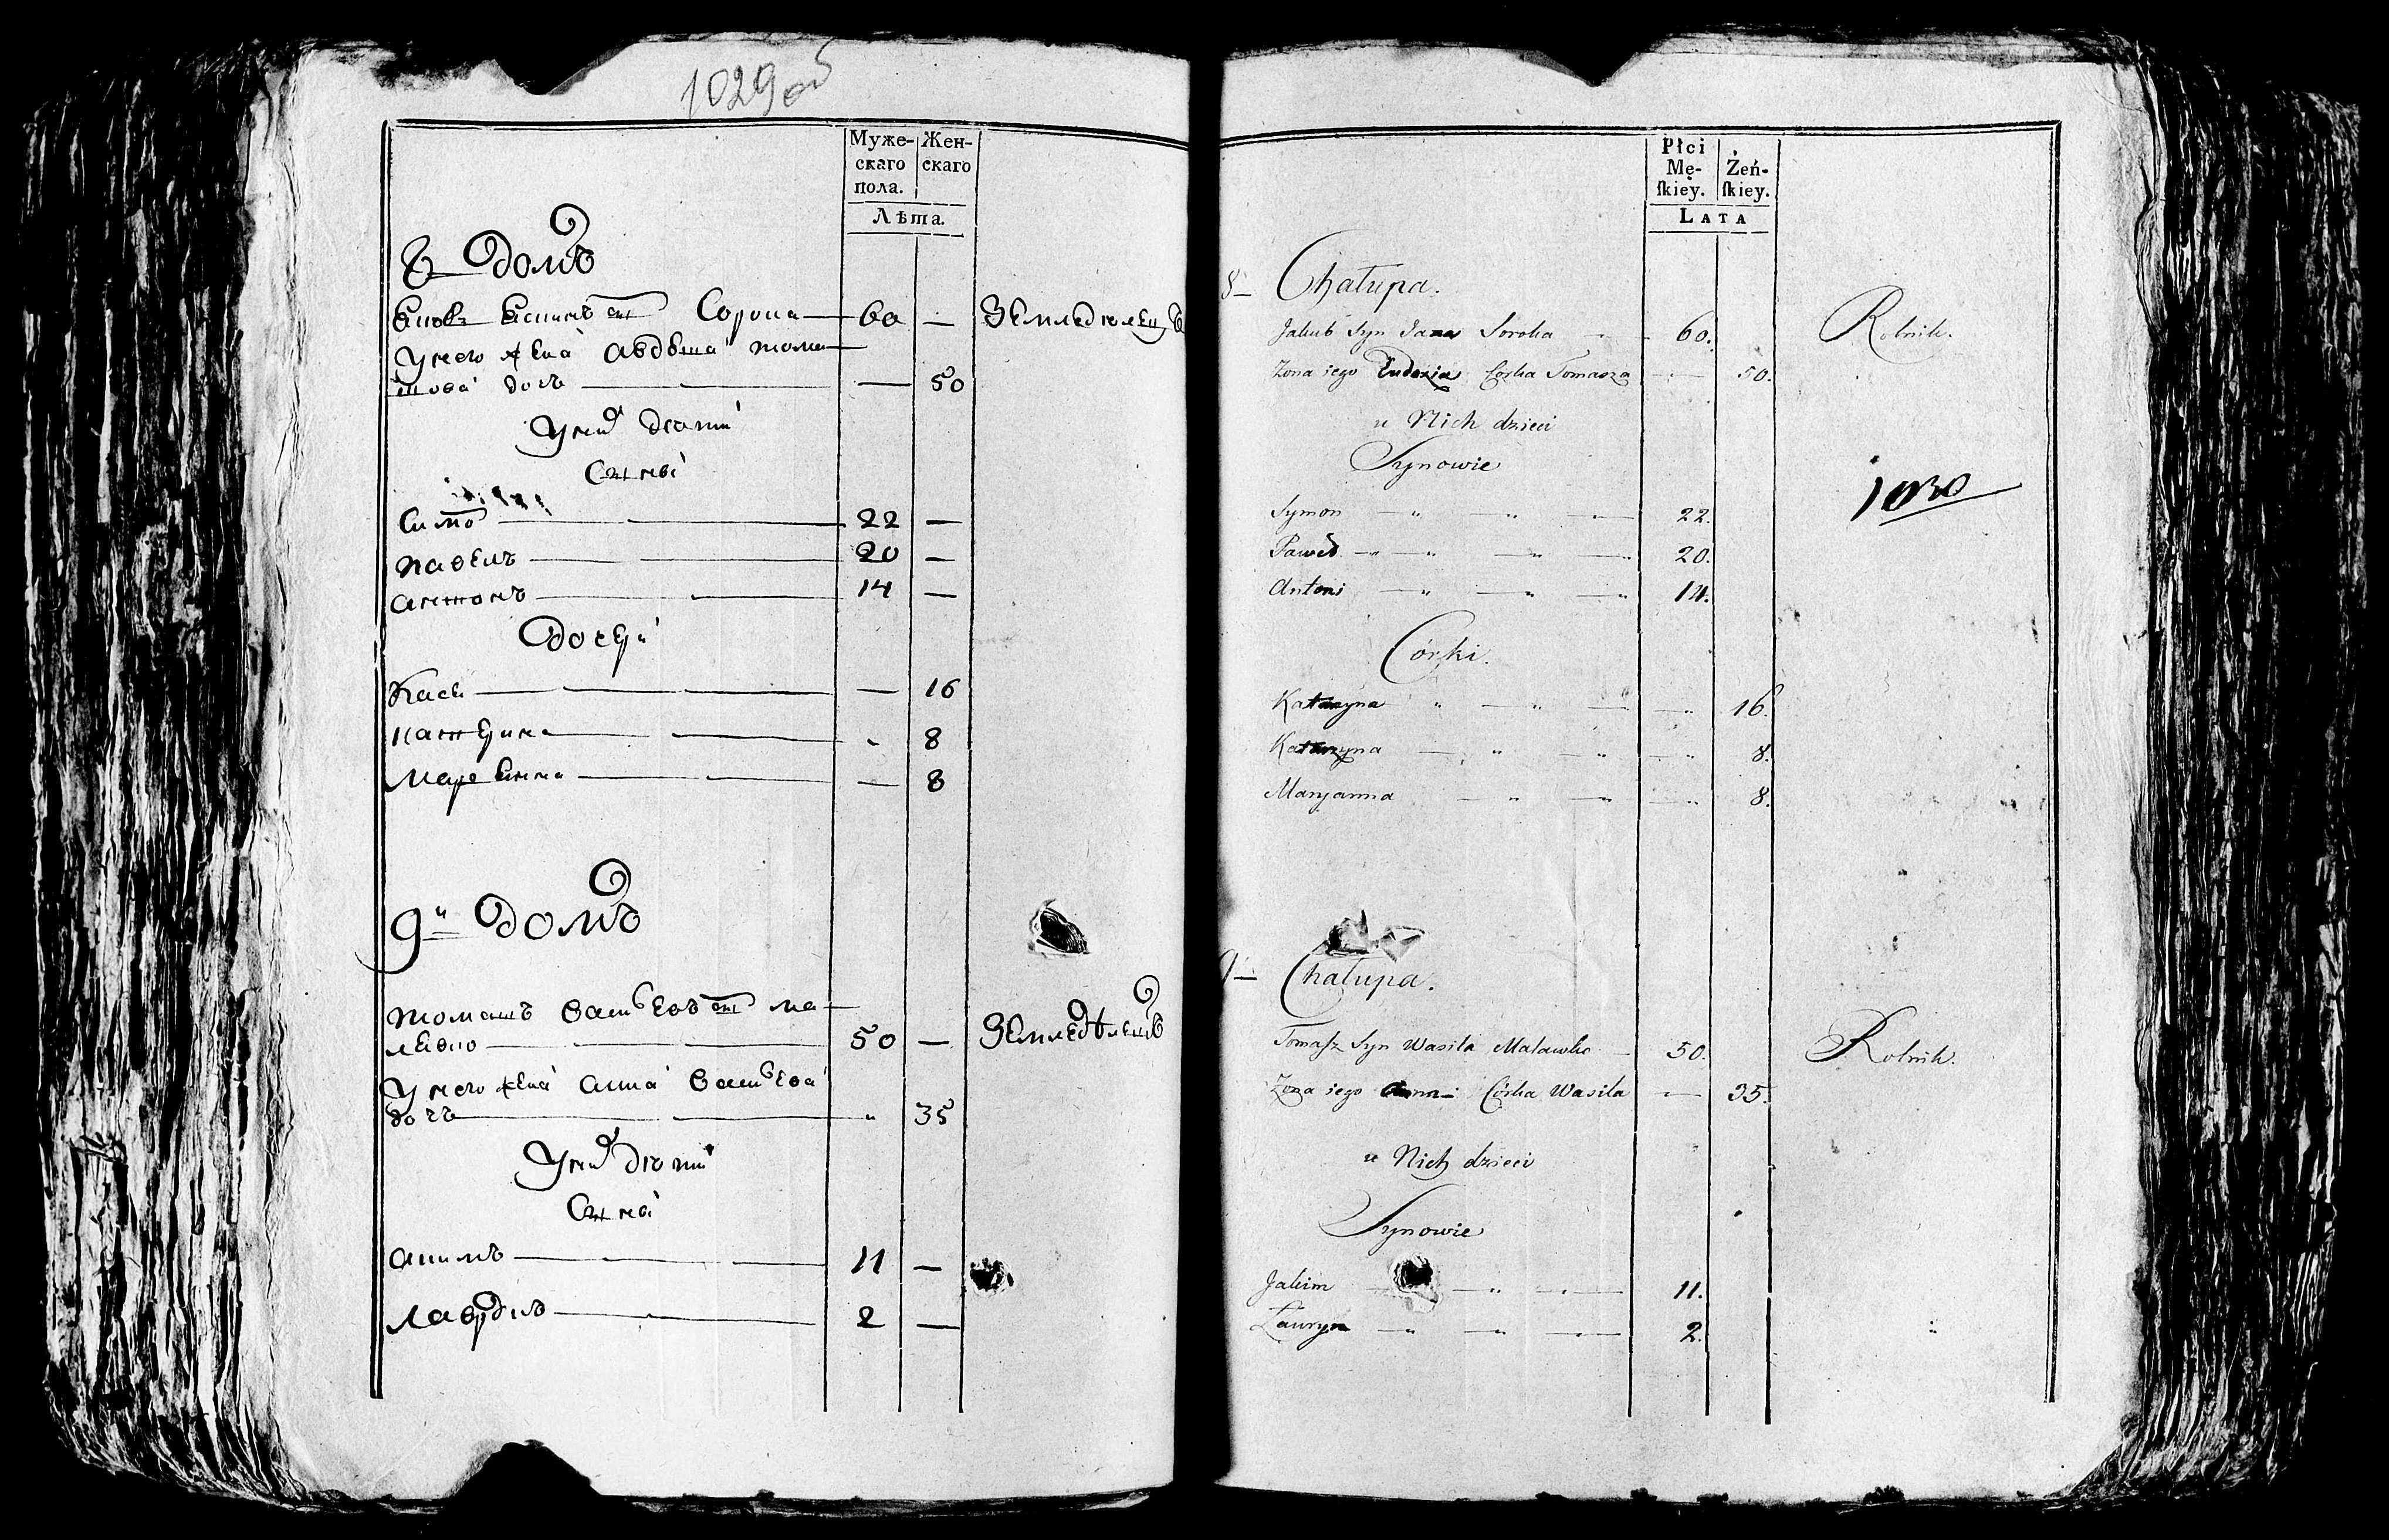 1029об
Муже-
скаго
пола.
Жен-
скаго
Лѣта.
8 Домъ
Сорока — 60 —
У него жена
дочъ — — 50
У них дѣти
Сыны
Симо — 22 —
павелъ — 20 —
антонъ — 14 —
дочери
Кася — — 16
катерина — 8
Марянна — — 8
9й домъ
томашъ ма-
левко — 50 — Земледѣлецъ
У него жена анна
дочъ — " 35
У них дѣти
Сыны
акимъ — 11 —
2 —
Płci
Mę-
ſkiey.
Żeń-
ſkiey.
LATA
8 — Chałupa.
Jakub Syn Jana Soroka — 60. Rolnik.
Żona iego Eudoxia Córka Tomasza — 50.
u Nich dzieci
Synowie
1030
Symon — " — " — 22.
Paweł — " — " — 20.
Antoni — " — " — 14.
Córki.
Katarzyna " — " — — 16.
Katarzyna — " — " — 8.
Maryanna — " — — 8.
9 — Chałupa.
Tomaſz Syn Wasila Malawko — 50. Rolnik.
Żona iego Anna Córka Wasila — 35.
u Nich dzieci
Synowie
Jakim — — " — 11.
Ławryn — " — " — 2.